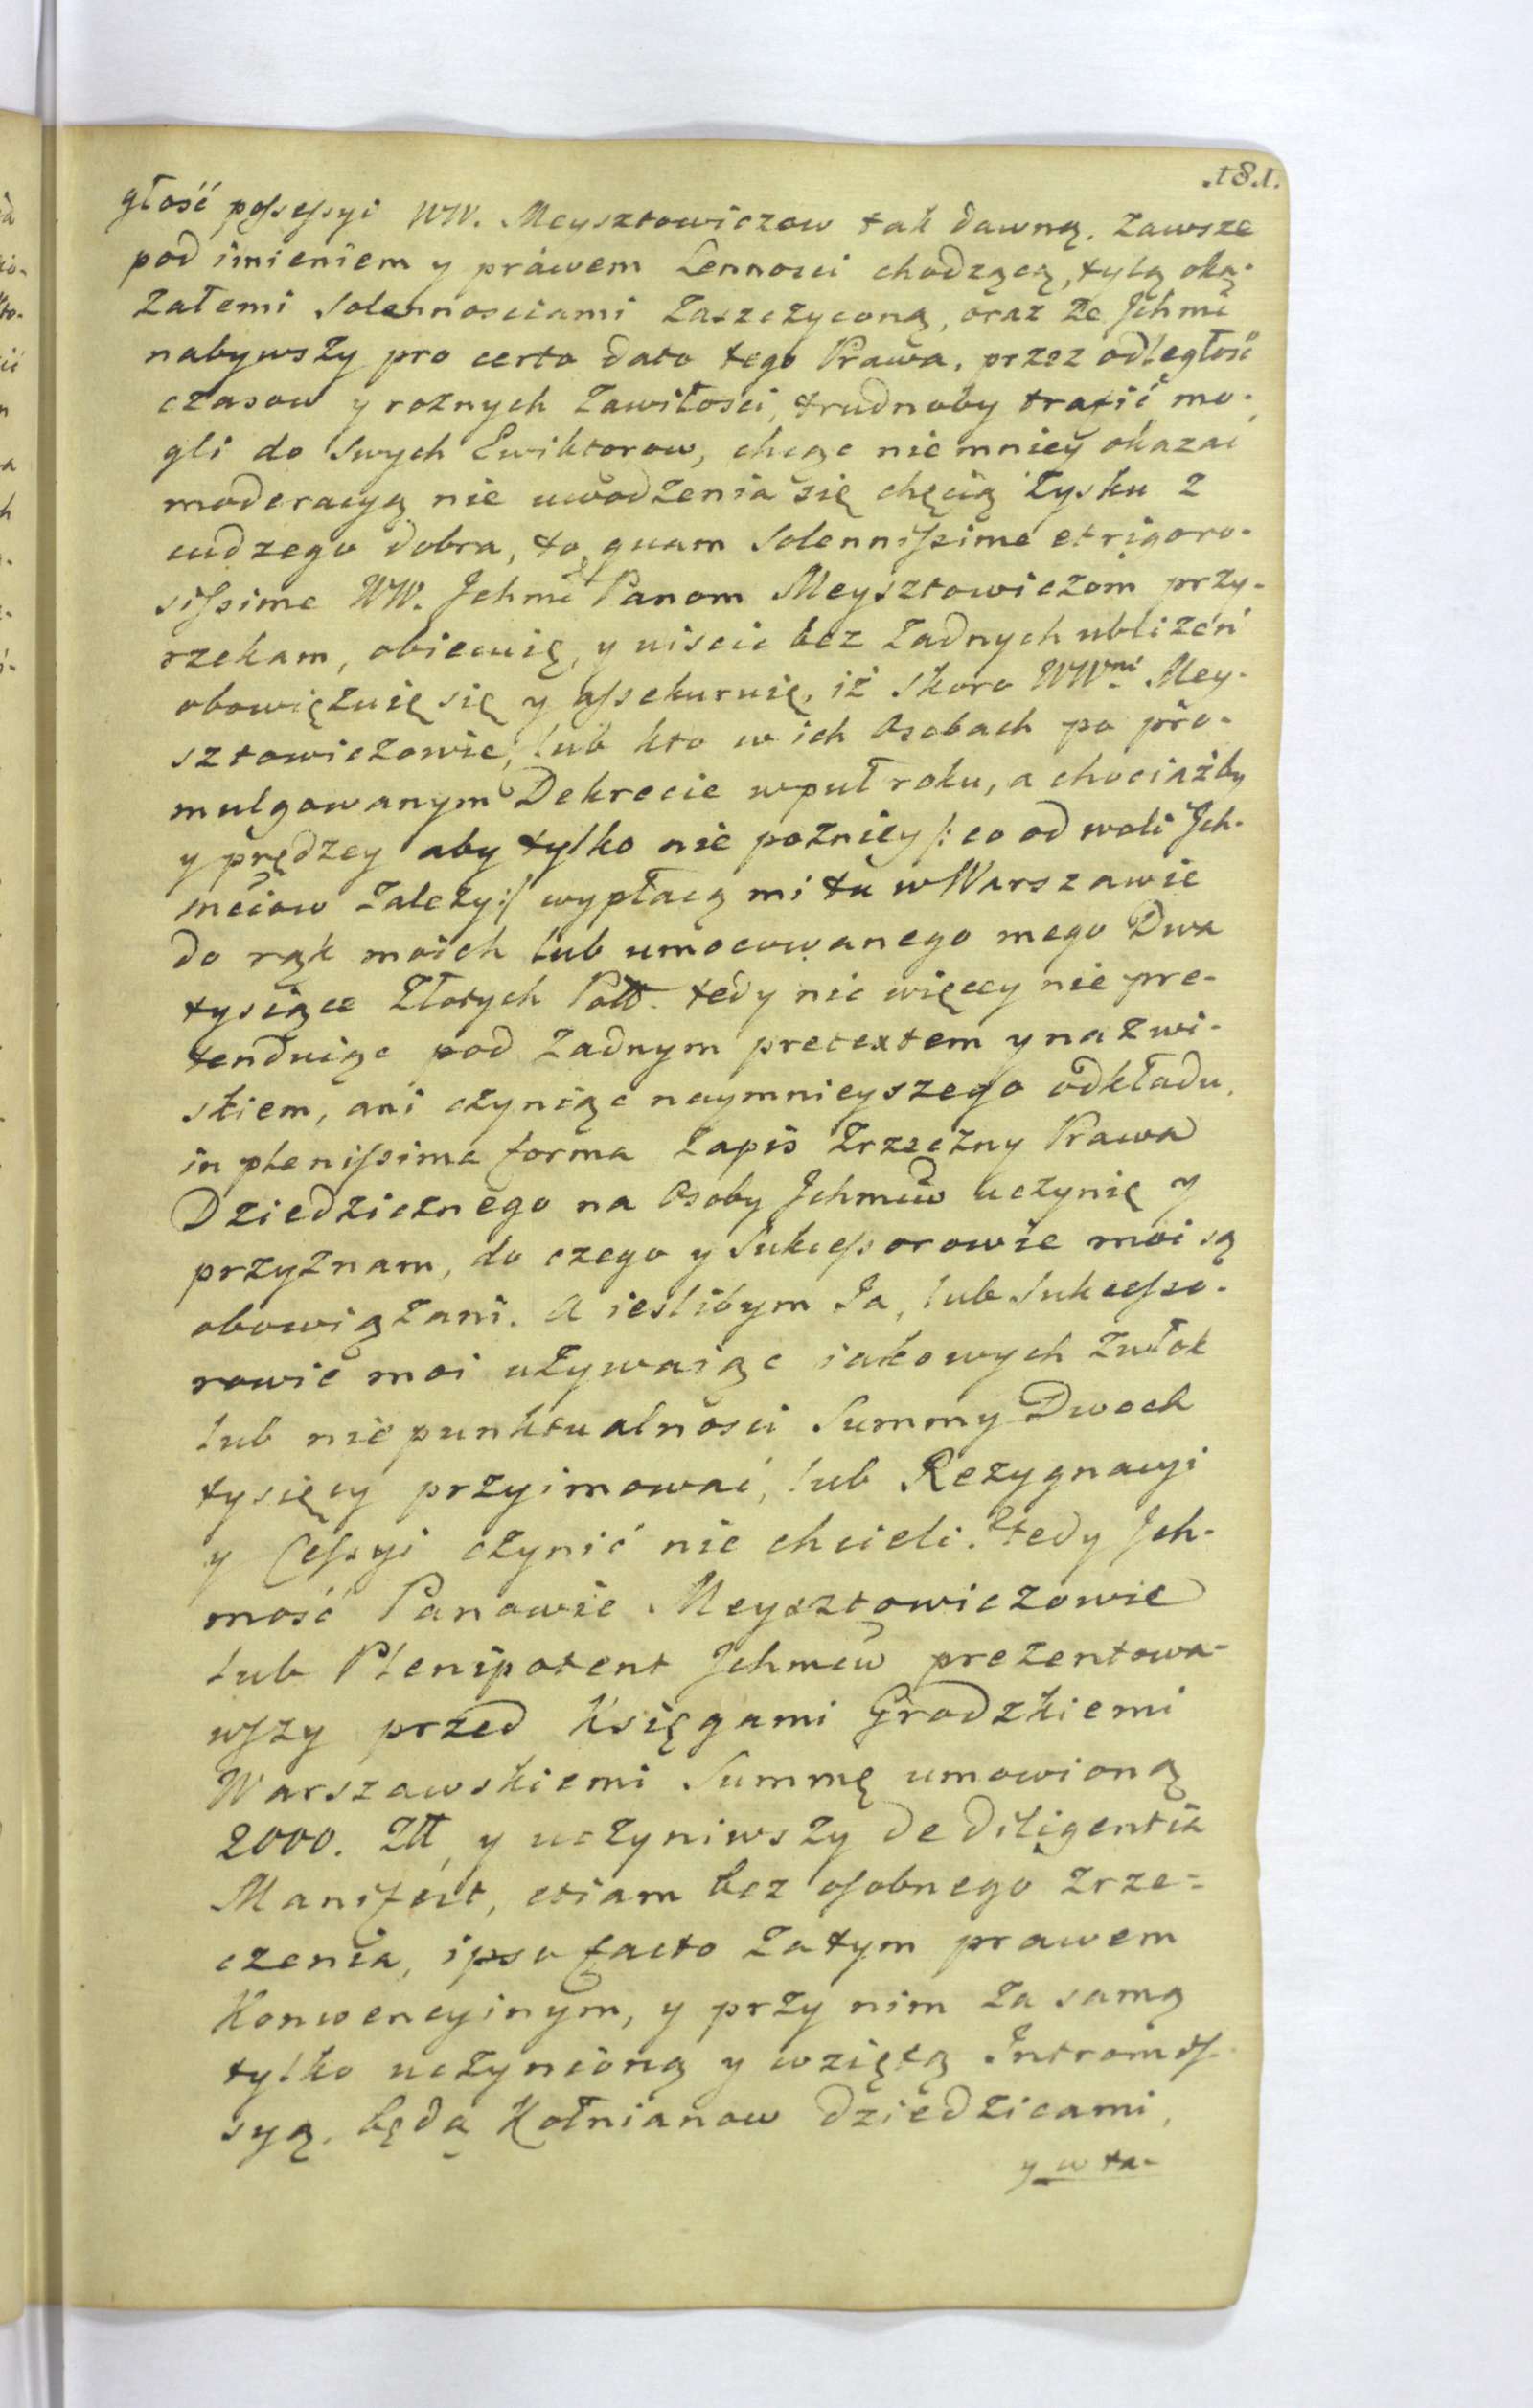 .181.
głość possessyi WW. Meysztowiczow tak dawną. zawsze
pod imieniem y prawem Lennosci chodzącą, tylą oka-
załemi solennosciami zaszczyconą, oraz że Jchmć
nabywszy pro certo dato tego Prawa, przez odległość
czasow y rożnych zawiłości, trudnoby trafić mo-
gli do swych Ewiktorow, chcąc nie mniey okazać
moderacyą nie uwodzenia się chęcią zysku z
cudzego dobra, to quam solennissime et rigoro-
sissime WW. Jchmć Panom Meysztowiczom przy-
rzekam, obiecuię, y uiscić bez żadnych ubliżeń
obowiązuię się y assekuruię, iż skoro WWni Mey-
sztowiczowie, lub kto w ich Osobach po pro-
mulgowanym Dekrecie w puł roku, a chociażby
y prędzey aby tylko nie pożniey /: co od woli Jch-
mciow zależy :/ wypłacą mi tu w Warszawie
do rąk moich lub umocowanego mego Dwa
tysiące Złotych Poll. tedy nic więcey nie pre-
tenduiąc pod żadnym pretextem y nazwi-
skiem, ani czyniąc naymnieyszego odkładu,
in plenissima forma zapis zrzeczny Prawa
Dziedzicznego na Osoby Jchmciow uczynię y
przyznam, do czego y Sukcessorowie moi są
obowiązani. A iesliбym Ja, lub Sukcesso-
rowie moi używaiąc iakowych zwłok
lub niepunktualności Summy Dwoch
tysięcy przyimować, lub Rezygnacyi
y Cessyi czynić nie chcieli. tedy Jch-
mość Panowie Meysztowiczowie
lub Plenipotent Jchmciow prezentowa-
wszy przed Księgami Grodzkiemi
Warszawskiemi Summę umowioną
2000. Złł, y uczyniwszy de diligentia
Manifest, etiam bez osobnego zrze-
czenia, ipso facto za tym prawem
Konwencyinym, y przy nim za samą
tylko uczynioną y wziętą Intromis-
syą, będą Kołnianow dziedzicami,
y w ta-